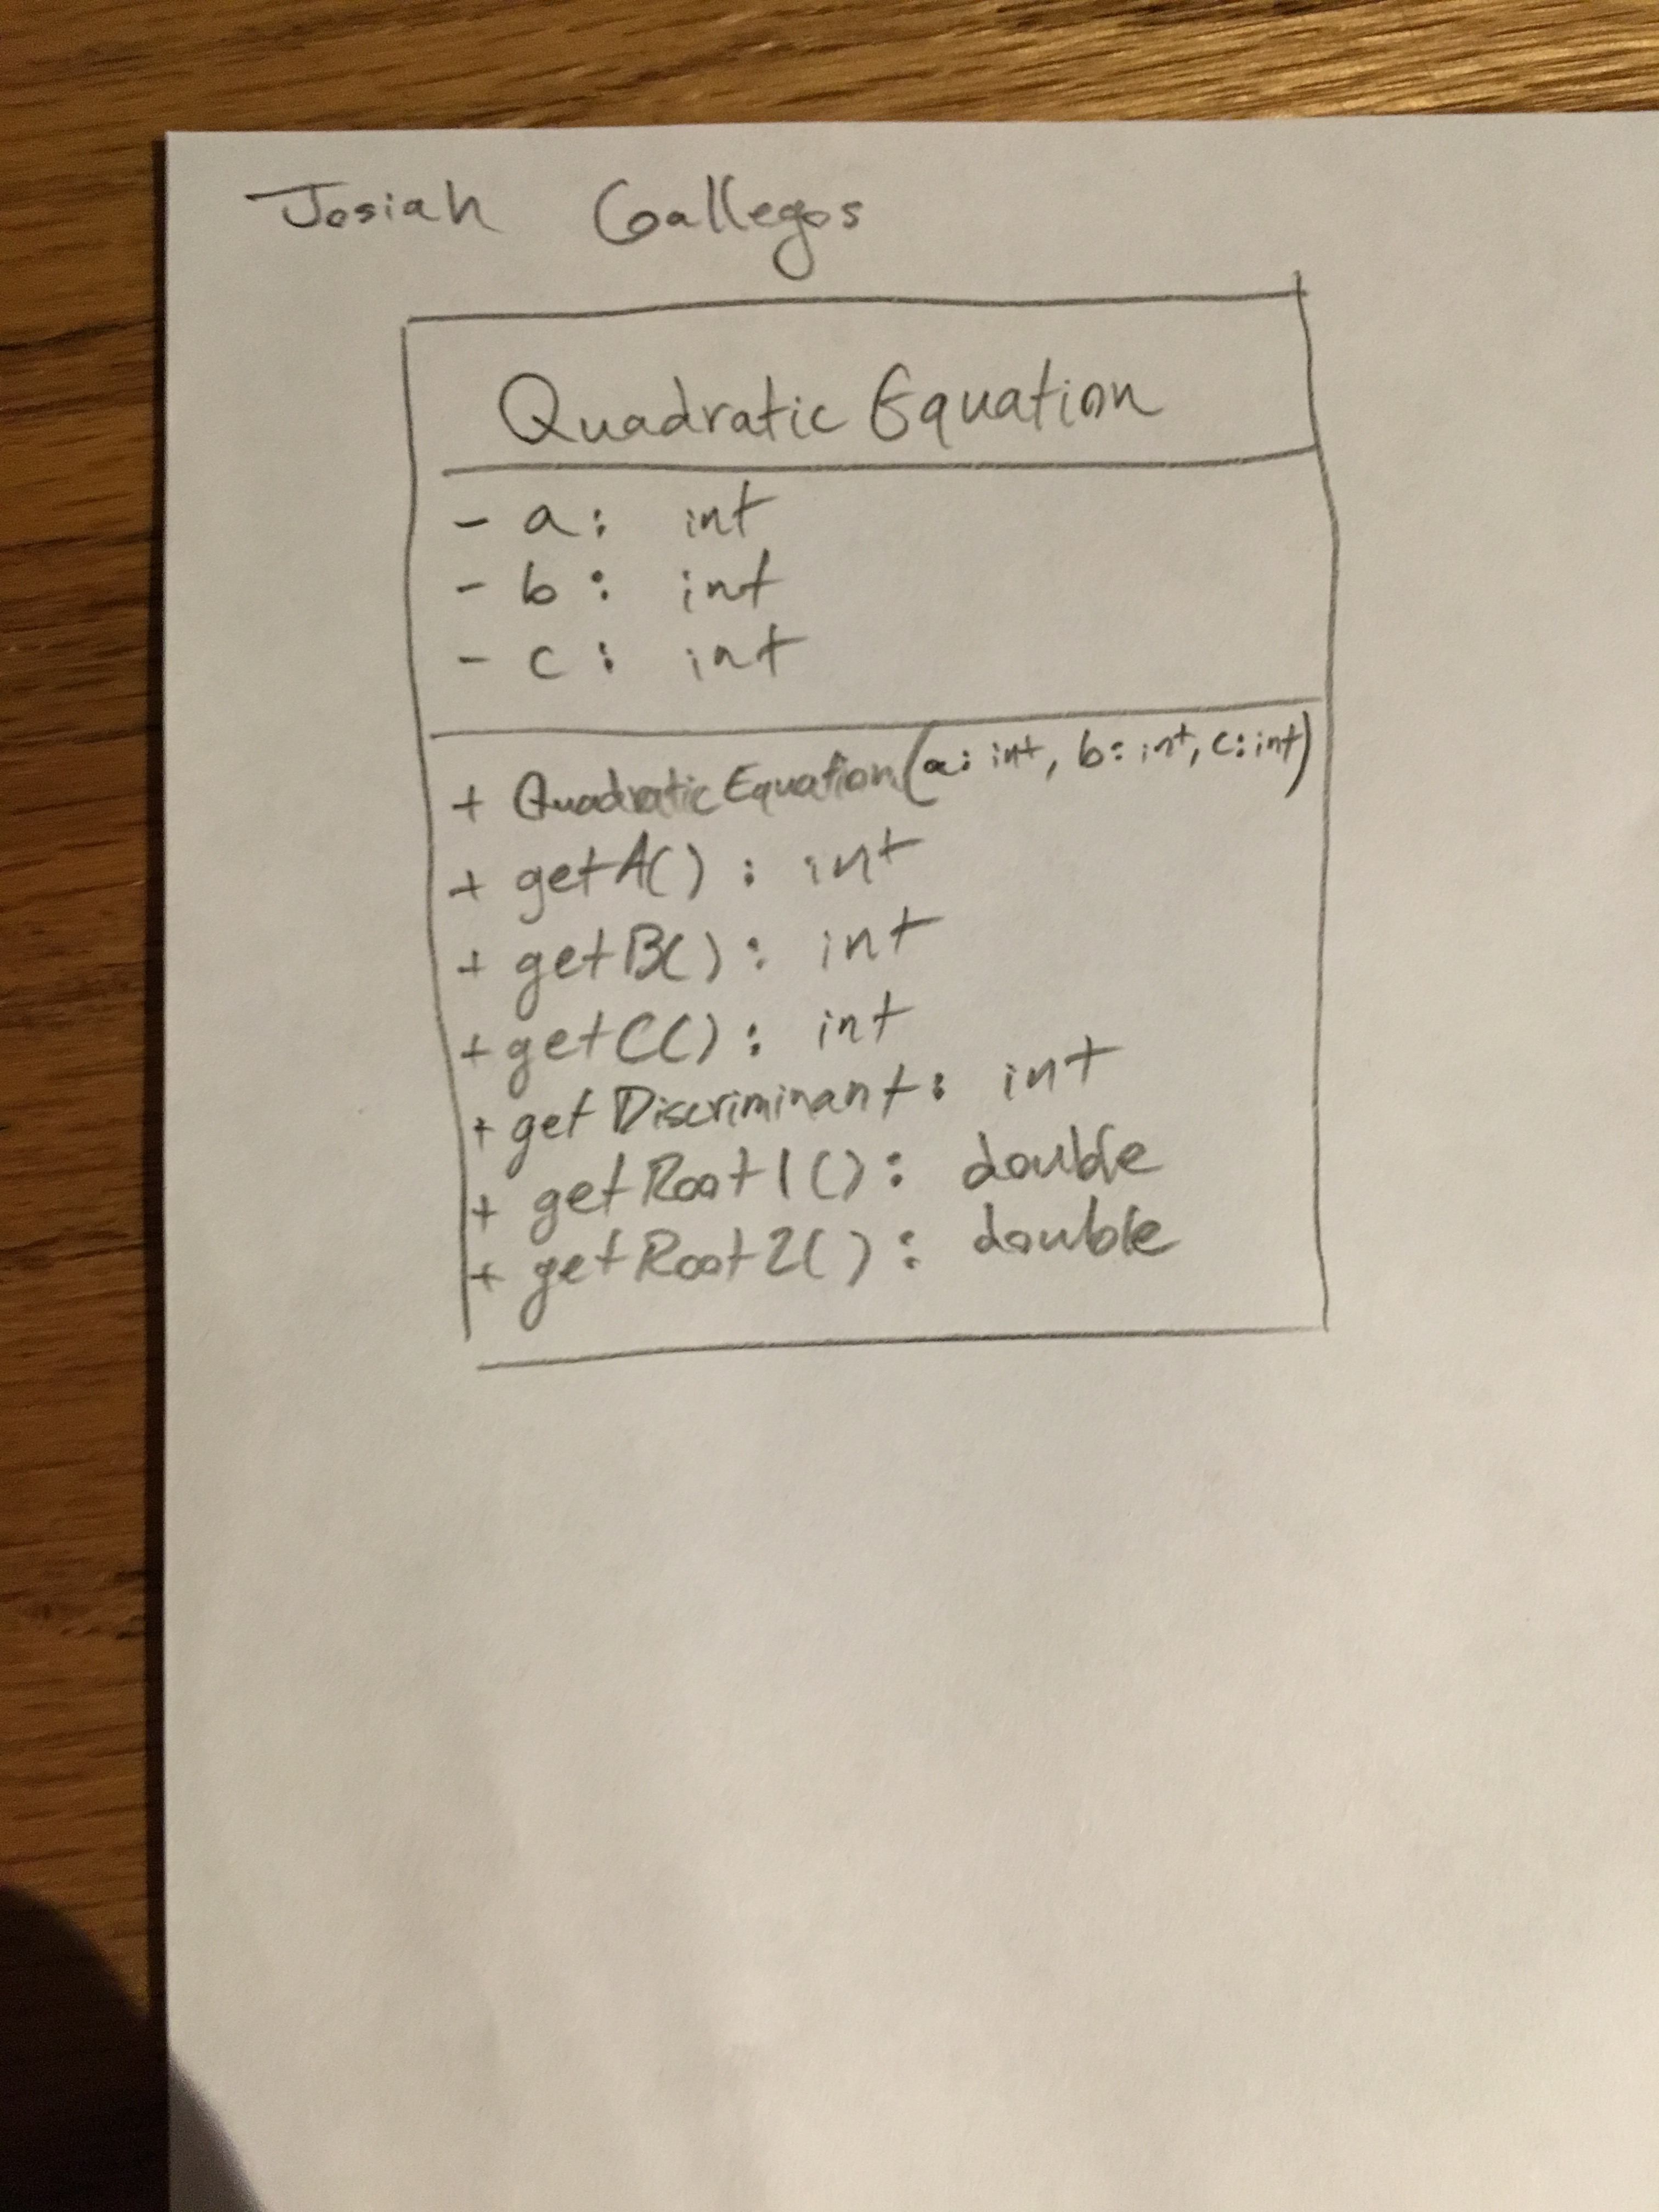 Josiah Gallegos
Quadratic Equation
- a: int
- b: int
- c: int
+ QuadraticEquation(a: int, b: int, c: int)
+ getA(): int
+ getB(): int
+ getC(): int
+ getDiscriminant: int
+ getRoot1(): double
+ getRoot2(): double